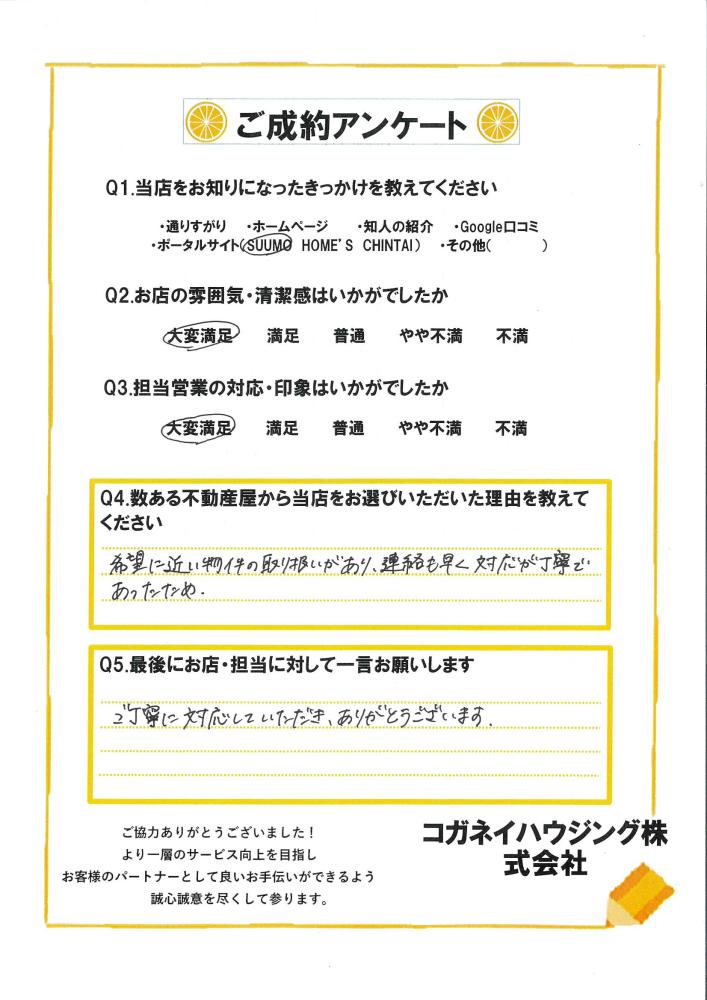 ご成約アンケート
Q1.当店をお知りになったきっかけを教えてください
・通りすがり ・ホームページ ・知人の紹介 ・Google口コミ
・ポータルサイト(SUUMO HOME'S CHINTAI) ・その他( )
Q2.お店の雰囲気・清潔感はいかがでしたか
大変満足 満足 普通 やや不満 不満
Q3.担当営業の対応・印象はいかがでしたか
大変満足 満足 普通 やや不満 不満
Q4.数ある不動産屋から当店をお選びいただいた理由を教えて
ください
希望に近い物件の取り扱いがあり、連絡も早く対応が丁寧で
あったため.
Q5.最後にお店・担当に対して一言お願いします
ご丁寧に対応していただき、ありがとうございます.
ご協力ありがとうございました！
より一層のサービス向上を目指し
お客様のパートナーとして良いお手伝いができるよう
誠心誠意を尽くして参ります。
コガネイハウジング株
式会社